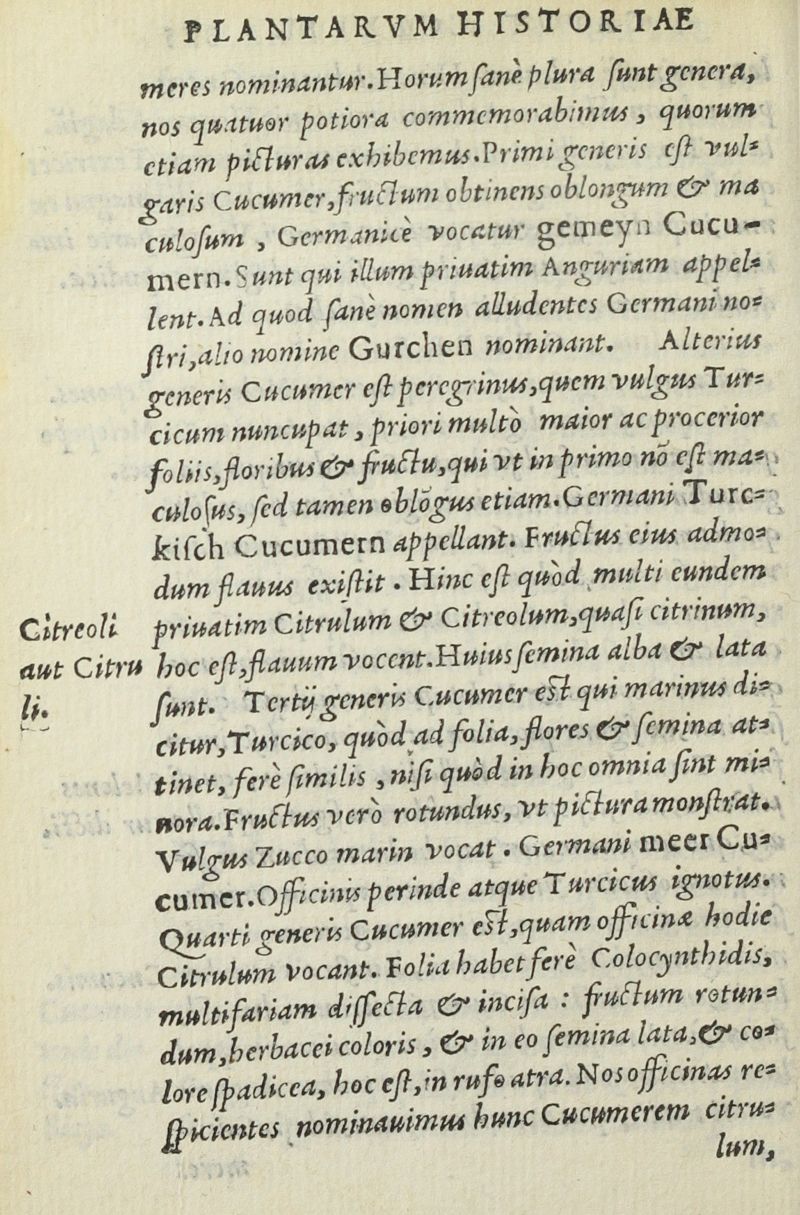 PLANTARVM HISTORIAE
meres nominantur. Horum sanè plura sunt genera,
nos quatuor potiora commemorabimus, quorum
etiam picturas exhibemus. Primi generis est vul-
garis Cucumer, fructum obtinens oblongum & ma
culosum, Germanicè vocatur gemeyn Cucu-
mern. Sunt qui illum priuatim Anguriam appel-
lent. Ad quod sanè nomen alludentes Germani no-
stri, alio nomine Gurchen nominant. Alterius
generis Cucumer est peregrinus, quem vulgus Tur-
cicum nuncupat, priori multò maior ac procerior
foliis, floribus & fructu, qui vt in primo nō est ma-
culosus, sed tamen oblōgus etiam. Germani Turc-
kisch Cucumern appellant. Fructus eius admo-
dum flauus existit. Hinc est quòd multi eundem
Citreoli priuatim Citrulum & Citreolum, quasi citrinum,
aut Citru hoc est, flauum vocent. Huius semina alba & lata
li. sunt. Tertij generis Cucumer est qui marinus di-
citur, Turcico, quòd ad folia, flores & semina at-
tinet, ferè similis, nisi quòd in hoc omnia sint mi-
nora. Fructus verò rotundus, vt pictura monstrat.
Vulgus Zucco marin vocat. Germani meer Cu-
cumer. Officinis perinde atque Turcicus ignotus.
Quarti generis Cucumer est, quam officinæ hodie
Citrulum vocant. Folia habet ferè Colocynthidis,
multifariam dissecta & incisa: fructum rotun-
dum, herbacei coloris, & in eo semina lata, & co-
lore spadicea, hoc est, in rufo atra. Nos officinas re-
spicientes nominauimus hunc Cucumerem citru-
lum,